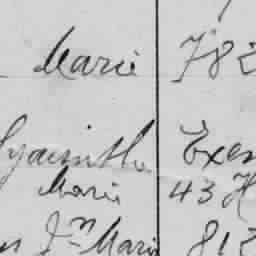 Marie 782
Hyacinthe Exem
Marie 43 H
Jn Marie 812